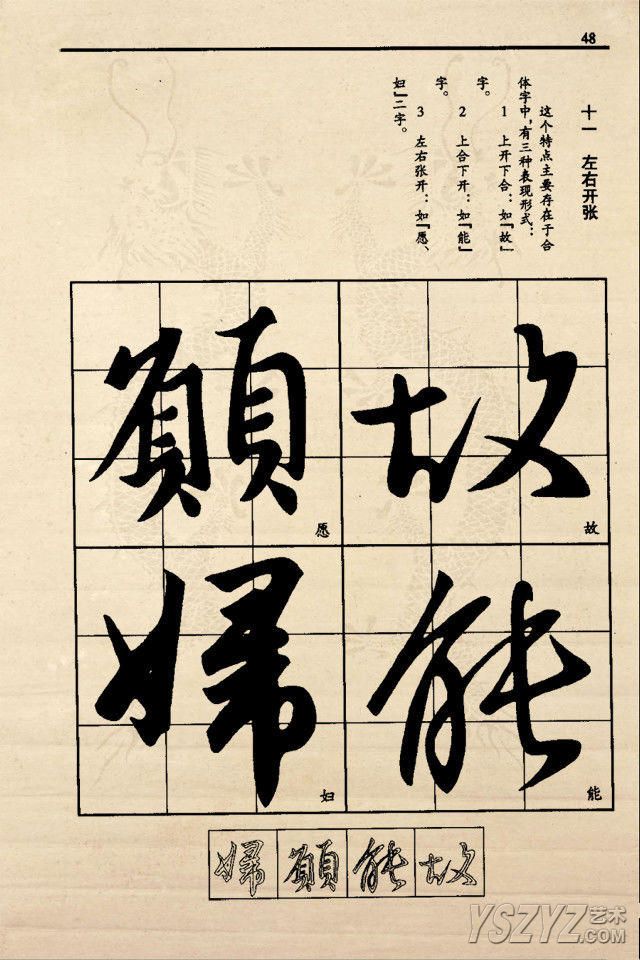 48
十一 左右开张
这个特点主要存在于合
体字中,有三种表现形式:
1 上开下合:如『故』
字。
2 上合下开:如『能』
字。
3 左右张开:如『愿、
妇』二字。
故
故
能
能
願
愿
婦
妇
故
能
願
婦
YSZYZ艺术
.COM